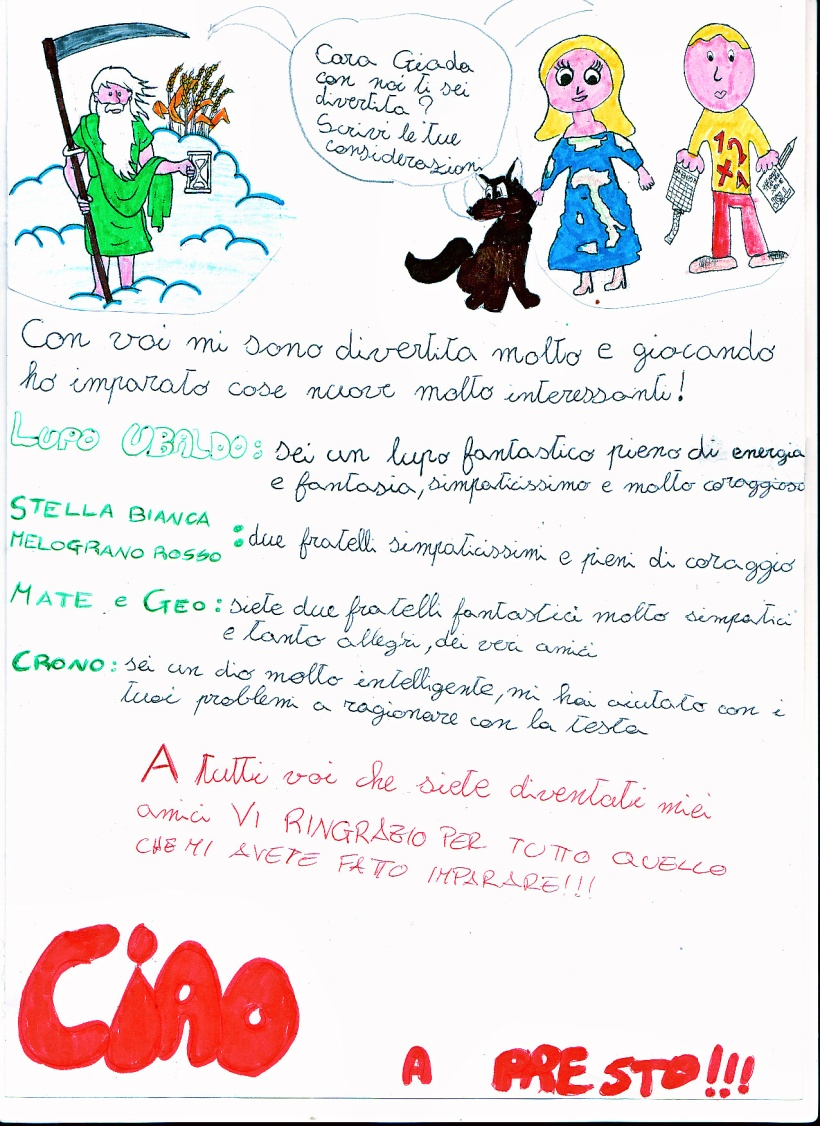 Cara Giada
con noi ti sei
divertita?
Scrivi le tue
considerazioni
Con voi mi sono divertita molto e giocando
ho imparato cose nuove molto interessanti!
LUPO UBALDO: sei un lupo fantastico pieno di energia
e fantasia, simpaticissimo e molto coraggioso
STELLA BIANCA
MELOGRANO ROSSO : due fratelli simpaticissimi e pieni di coraggio
MATE e GEO: siete due fratelli fantastici molto simpatici
e tanto allegri, dei veri amici
CRONO: sei un dio molto intelligente, mi hai aiutato con i
tuoi problemi a ragionare con la testa
A tutti voi che siete diventati miei
amici VI RINGRAZIO PER TUTTO QUELLO
CHE MI AVETE FATTO IMPARARE!!!
CIAO
A PRESTO!!!